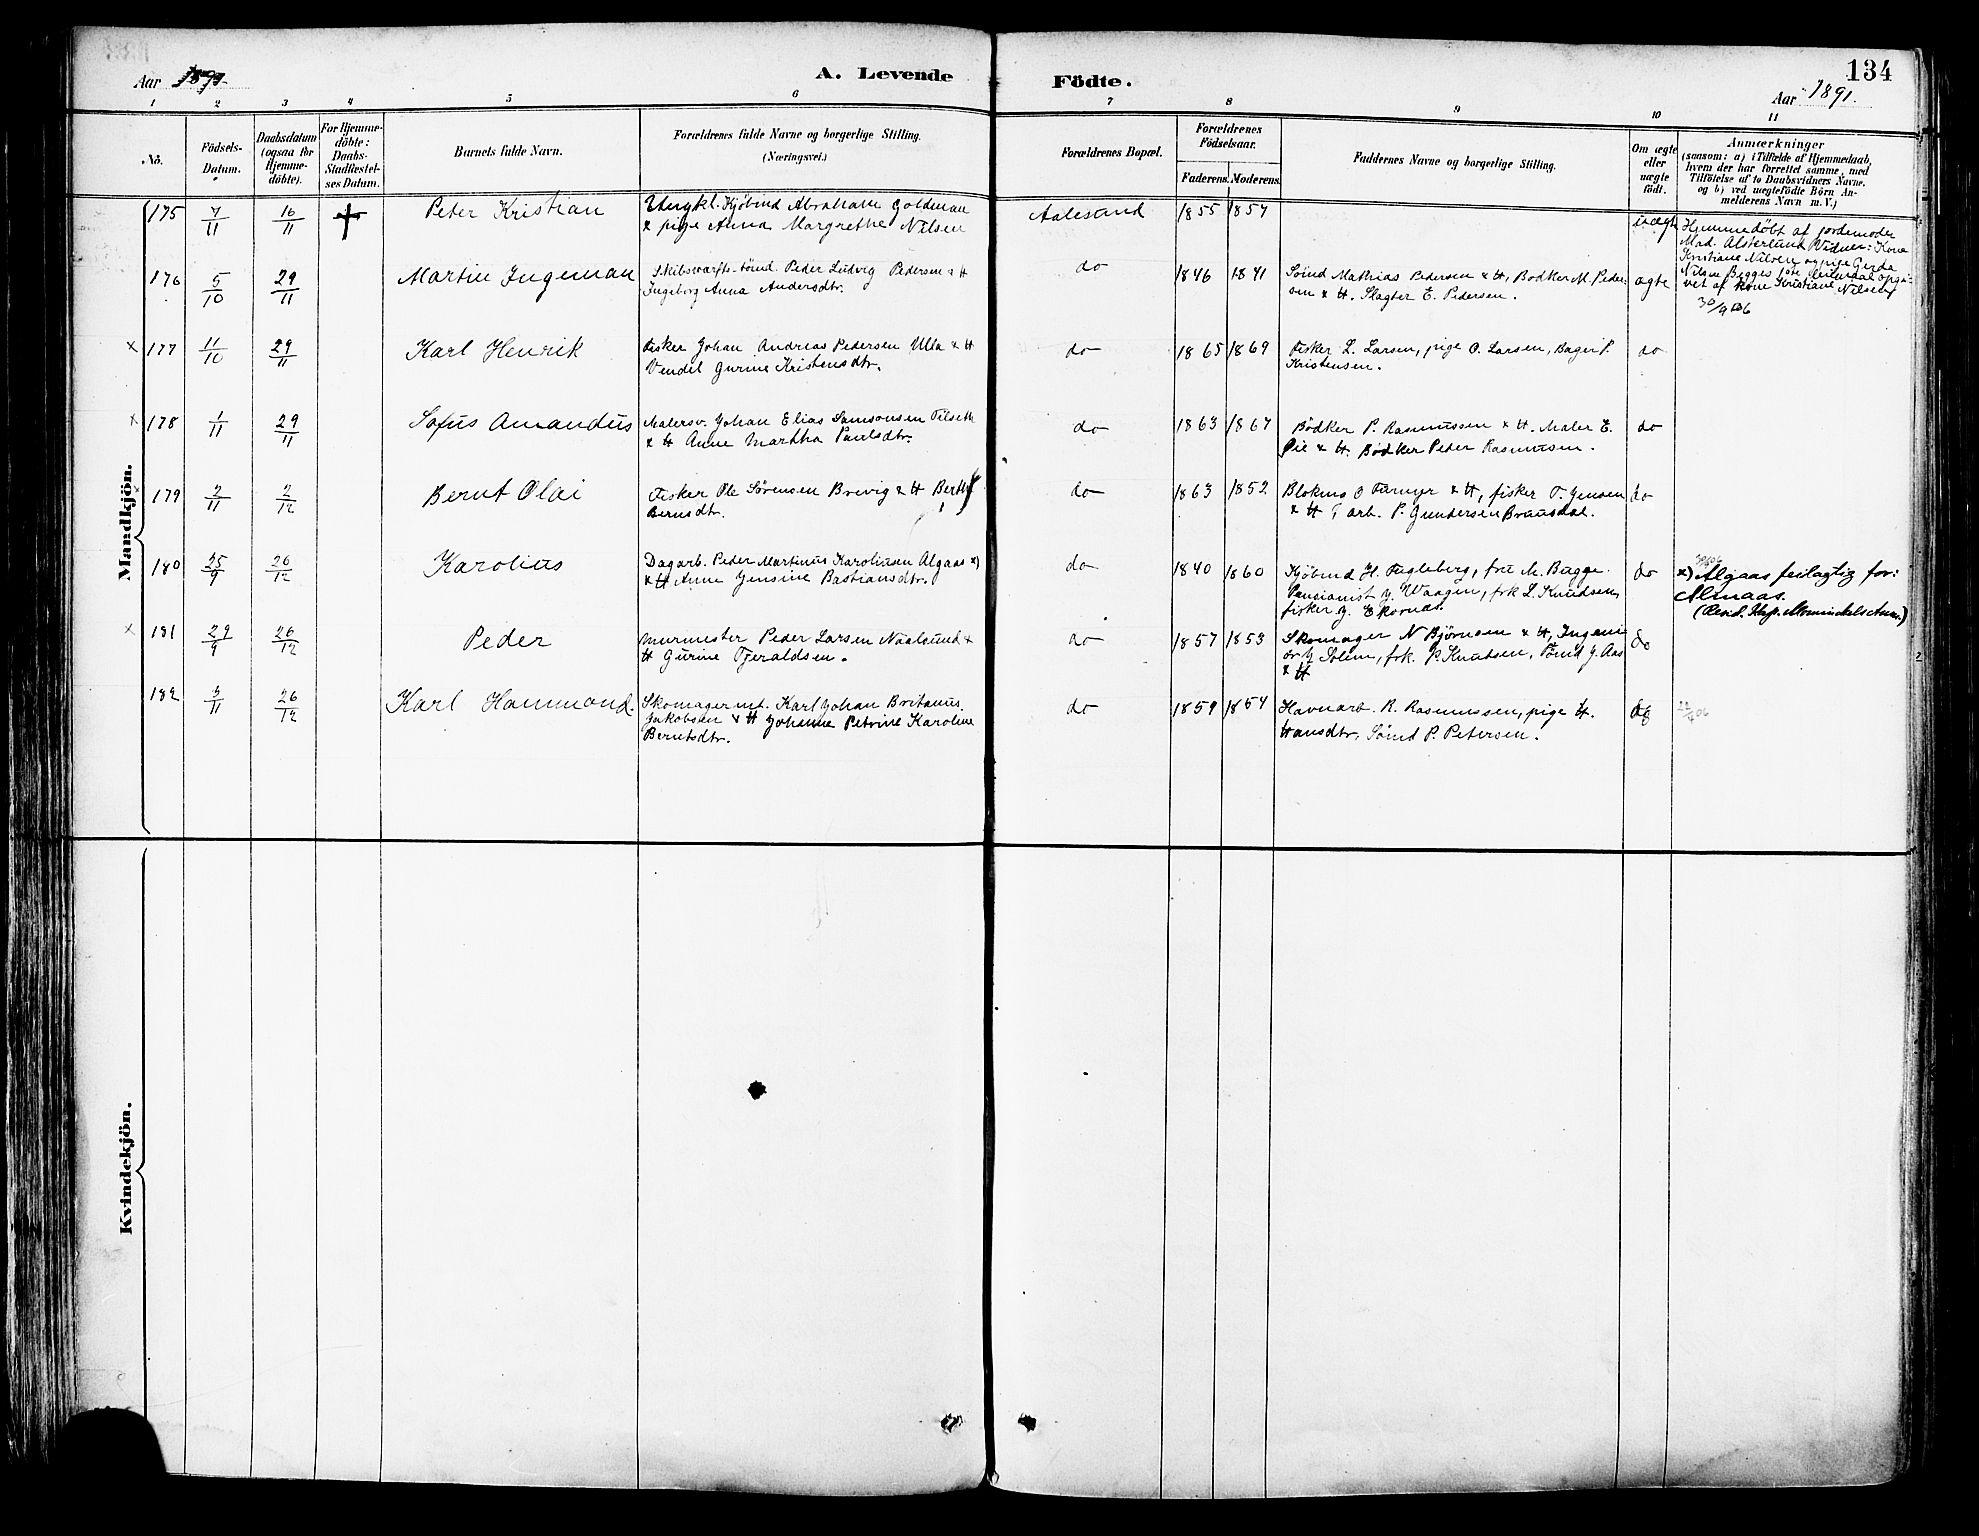 134
Aar 1891.
A. Levende Födte.
Aar 1891.
1 2 3 4 5 6 7 8 9 10 11
No.
Födsels-
Datum.
Daabsdatum
(ogsaa for
Hjemme-
döbte).
For Hjemme-
döbte:
Daabs-
Stadfæstel-
ses Datum.
Barnets fulde Navn.
Forældrenes fulde Navne og borgerlige Stilling.
(Næringsvei.)
Forældrenes Bopæl.
Forældrenes
Födselsaar.
Faderens. Moderens.
Faddernes Navne og borgerlige Stilling.
Om ægte
eller
uægte
födt.
Anmærkninger
(saasom: a) i Tilfælde af Hjemmedaab,
hvem der har forrettet samme, med
Tilföielse af to Daabsvidners Navne,
og b) ved uægtefödte Börn An-
melderens Navn m. V.)
Mandkjön.
175 7/11 16/11 Peter Kristian
Kjøbmd Abraham Goldman
& pige Anna Margrethe Nilsen
Aalesund 1855 1857 uægte
Hjemmedøbt af jordemoder
Mad. Alsterlund Vidner: Kone
Kristiane Nilsen og pige Gerda
Nilsen Begges
vet af Kone Kristiane Nilsen
30/9 06
176 5/10 29/11 Martin Ingeman
Skibsværfts-tømd. Peder Ludvig Pedersen & H
Ingeborg Anna Andersdtr.
do 1846 1841
Tømd Mathias Pedersen & H, Bødker M. Peder-
sen & H. Slagter E. Pedersen.
ægte
x 177 11/10 29/11 Karl Henrik
Fisker Johan Andreas Pedersen Ulla & H
Vendel Gurine Kristensdtr.
do 1865 1869
Fisker L. Larsen, pige O. Larsen, Bager P.
Kristensen.
do
x 178 1/11 29/11 Sofus Amandus
Malersv. Johan Elias Samsonsen Tilseth
& H Anne Martha Paulsdtr.
do 1863 1867
Bødker P. Rasmussen & H. Maler E.
Øie & H. Bødker Peder Rasmussen.
do
179 2/11 2/12 Bernt Olai
Fisker Ole Sørensen Brevig & H Berthe
Berntsdtr.
do 1863 1852
Blokms O & H, fisker T. Jensen
& H, arb. P. Gundersen Brausdal.
do
180 25/9 26/12 Karolius
Dagarb. Peder Martinus Karoliusen Algaas x)
& H Anne Jensine Bastiansdtr.
do 1840 1860
Kjøbmd H. Fugleberg, fru M. Bugge.
Pensionist J. Waagen, frk L. Knudsen,
fisker J. Ekornes.
do
x) Algaas feilagtig for:
Almaas.
x 181 29/9 26/12 Peder
Murmester Peder Larsen Naalsund &
H Gurine Tjeraldsen.
do 1857 1853
Skomager N Bjørnsen & H, Ingeni-
ør J Solem, frk. P. Knutsen, Tømd J. Aas
& H
do
182 3/11 26/12 Karl Hammond.
Skomagermt. Karl Johan Britanus
Jakobsen & H Johanne Petrine Karoline
Berntsdtr.
do 1859 1854
Havnarb. R. Rasmussen, pige H.
Hansdtr, Tømd P. Petersen.
do
Kvindekjön.